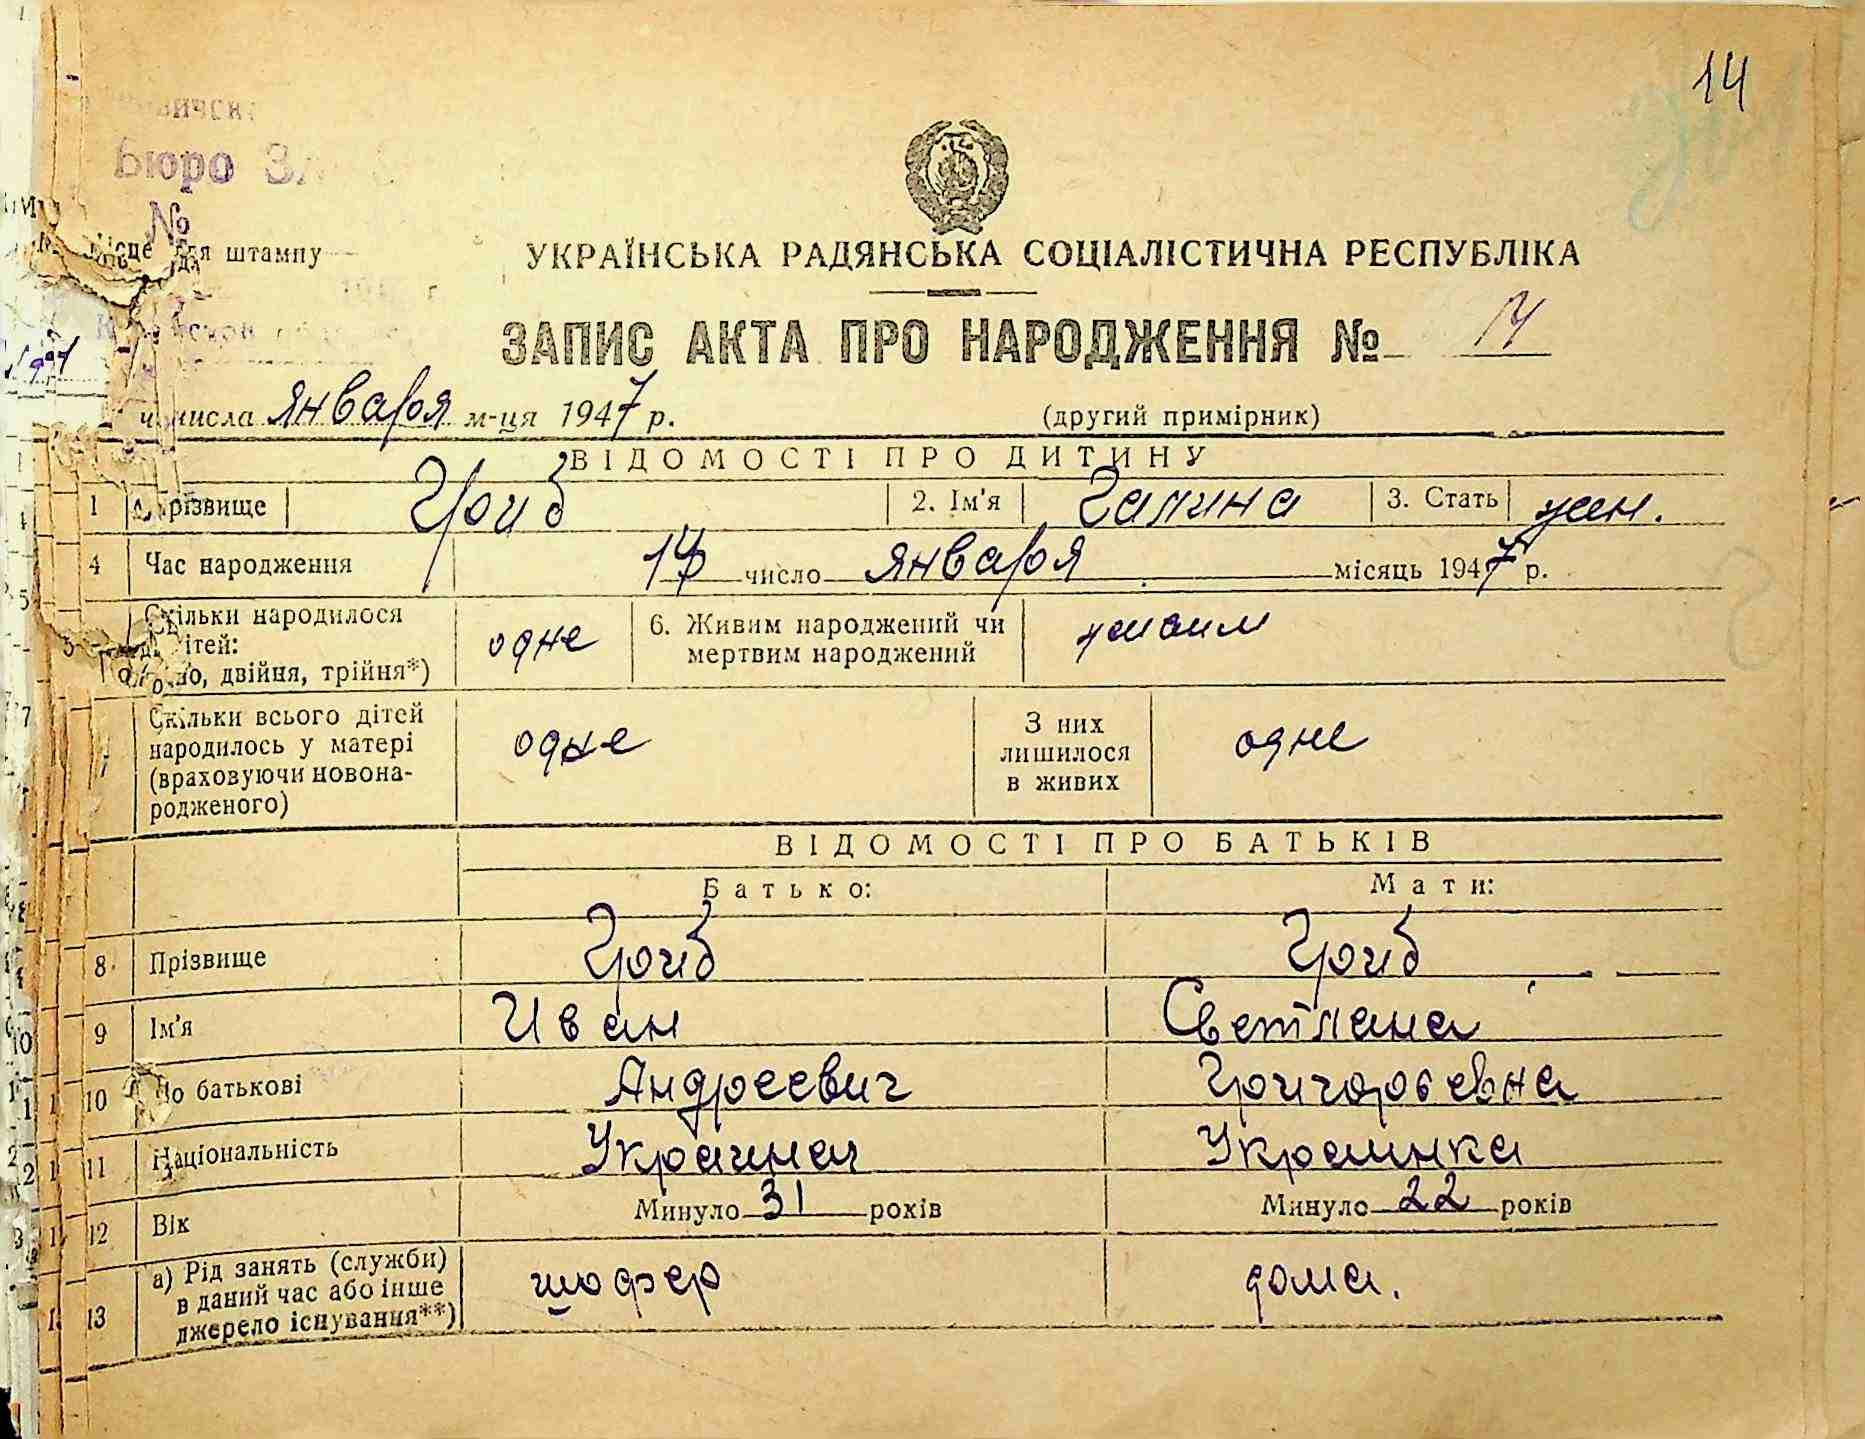 14
Бюро
№
Місце для штампу
УКРАЇНСЬКА РАДЯНСЬКА СОЦІАЛІСТИЧНА РЕСПУБЛІКА
ЗАПИС АКТА ПРО НАРОДЖЕННЯ № 14
числа января м-ця 1947 р. (другий примірник)
ВІДОМОСТІ ПРО ДИТИНУ
1 Прізвище Гриб 2. Ім'я Галина 3. Стать жен.
4 Час народження число января місяць 1947 р.
5 Скільки народилося дітей: одне 6. Живим народжений чи мертвим народжений живим
двійня, трійня*)
7 Скільки всього дітей народилось у матері (враховуючи новонародженого) одне З них лишилося в живих одне
ВІДОМОСТІ ПРО БАТЬКІВ
Батько: Мати:
8 Прізвище Гриб Гриб
9 Ім'я Иван Светлана
10 По батькові Андреевич Григорьевна
11 Національність Украинец Украинка
12 Вік Минуло 31 років Минуло 22 років
13 а) Рід занять (служби) в даний час або інше джерело існування**) шофер дома.